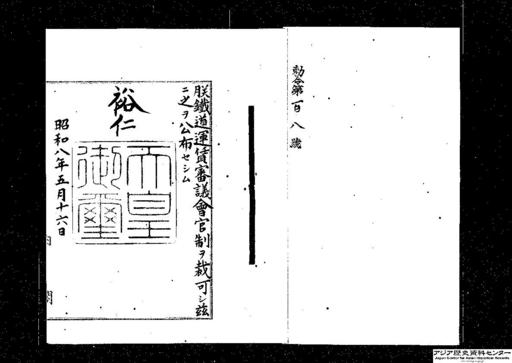 勅令第百八號
朕鐵道運賃審議會官制ヲ裁可シ茲
ニ之ヲ公布セシム
裕仁
天皇御璽
昭和八年五月十六日
内閣
アジア歴史資料センター
Japan Center for Asian Historical Records